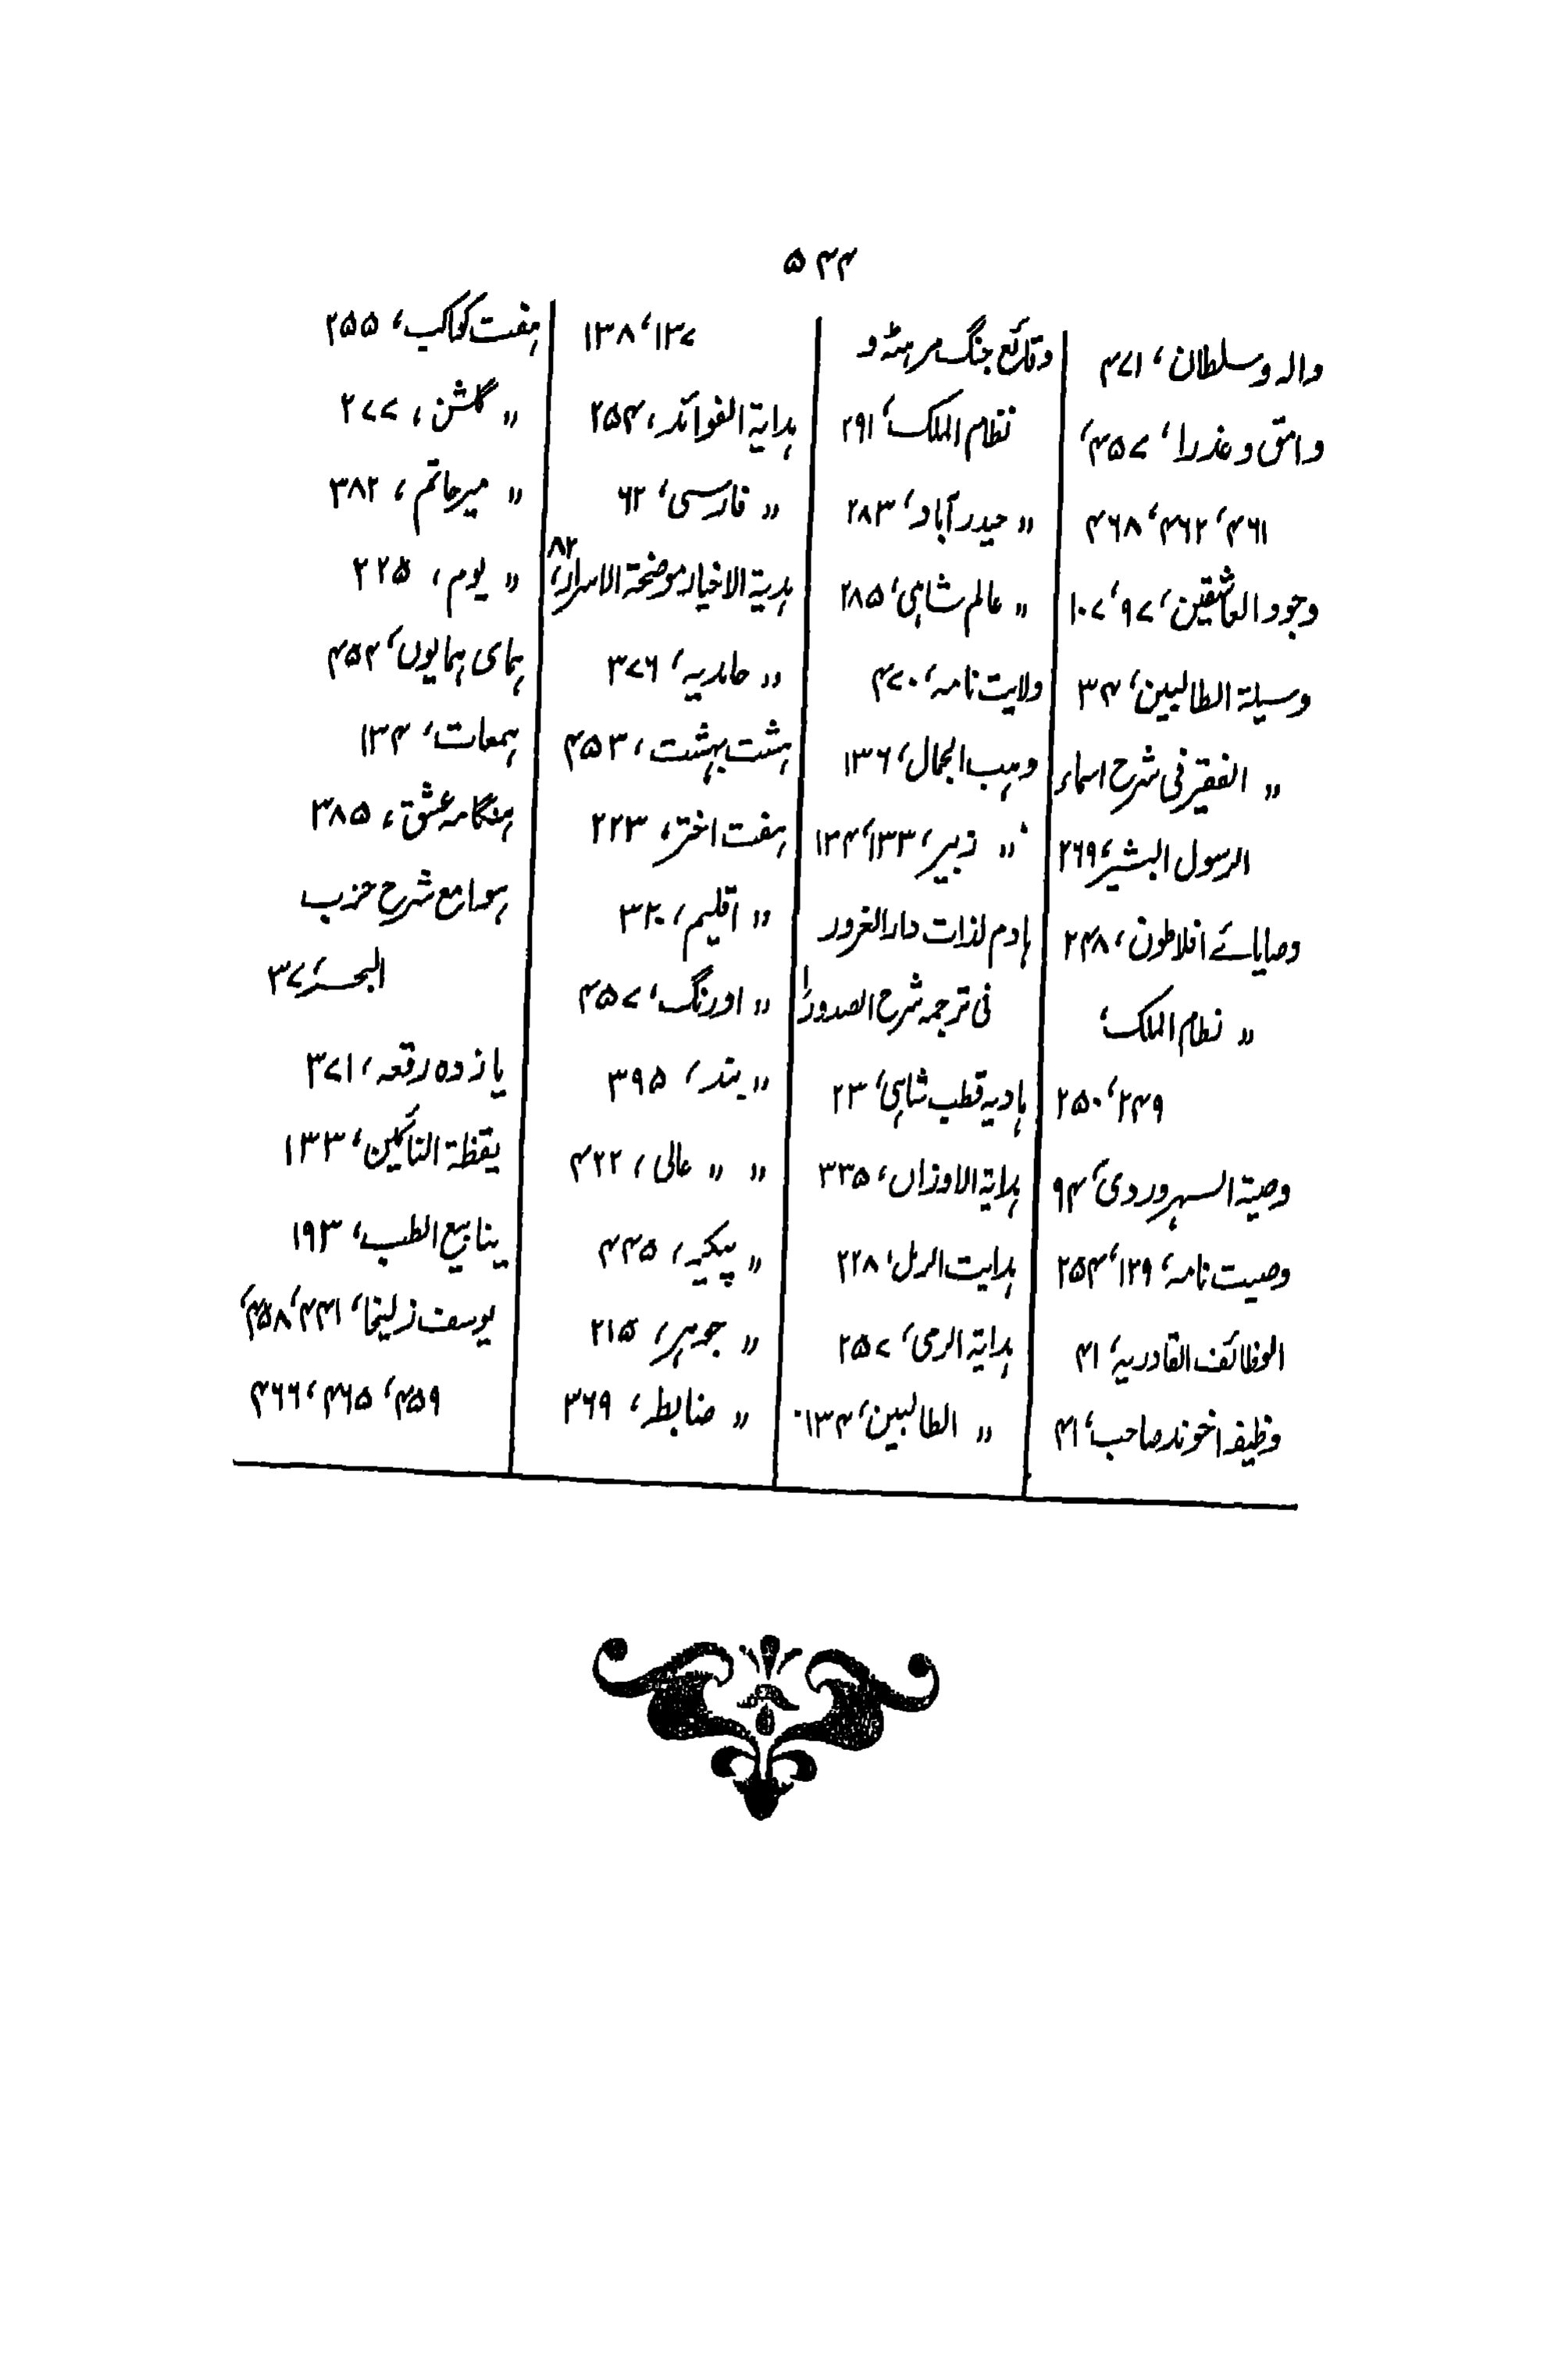 ۵۴۴
والہ و سلطان، ۴۷۱
وامق و عذرا، ۴۵۷،
۴۶۱، ۴۶۲، ۴۶۸
وجود العاشقین، ۹۷، ۱۰۷
وسیلۃ الطالبین، ۳۴
〃 الفقیر فی شرح اسماء
الرسول البشیر، ۲۶۹
وصایائے افلاطون، ۲۴۸
〃 نظام الملک،
۲۴۹، ۲۵۰
وصیۃ السہروردی، ۹۴
وصیت نامہ، ۱۲۹، ۲۵۴
الوظائف القادریہ، ۴۱
وظیفہ اخوند صاحب، ۴۱
وقائع جنگ مرہٹہ و
نظام الملک، ۲۹۱
〃 حیدرآباد، ۲۸۳
〃 عالم شاہی، ۲۸۵
ولایت نامہ، ۴۷۰
وہب الجمال، ۱۳۶
〃 زبیر، ۱۳۳، ۱۳۴
ہادم لذات دار الغرور
فی ترجمہ شرح الصدور،
ہادیہ قطب شاہی، ۲۳
ہدایۃ الاوزان، ۳۳۵
ہدایت الرمل، ۲۲۸
ہدایۃ الرمی، ۲۵۷
〃 الطالبین، ۱۳۴
۱۳۷، ۱۳۸
ہدایۃ الفوائد، ۲۵۴
〃 فارسی، ۶۲
ہدیۃ الاخیار موضحۃ الاسرار، ۸۲
〃 حامدیہ، ۳۷۶
ہشت بہشت، ۴۵۳
ہفت اختر، ۲۲۳
〃 اقلیم، ۳۲۰
〃 اورنگ، ۴۵۷
〃 بند، ۳۹۵
〃 〃 عالی، ۴۲۲
〃 پیکر، ۴۴۵
〃 جوہر، ۲۱۵
〃 ضابطہ، ۳۶۹
ہفت کواکب، ۲۵۵
〃 گلشن، ۲۷۷
〃 میر حاتم، ۳۸۲
〃 یوم، ۲۲۵
ہمای ہمایوں، ۴۵۴
ہمعات، ۱۳۴
ہنگامہ عشق، ۳۸۵
ہوامع شرح حزب
البحر، ۳۷
یازدہ رقعہ، ۳۷۱
یقظۃ النائمین، ۱۳۳
ینابیع الطب، ۱۹۳
یوسف زلیخا، ۴۴۱، ۴۵۸،
۴۵۹، ۴۶۵، ۴۶۶